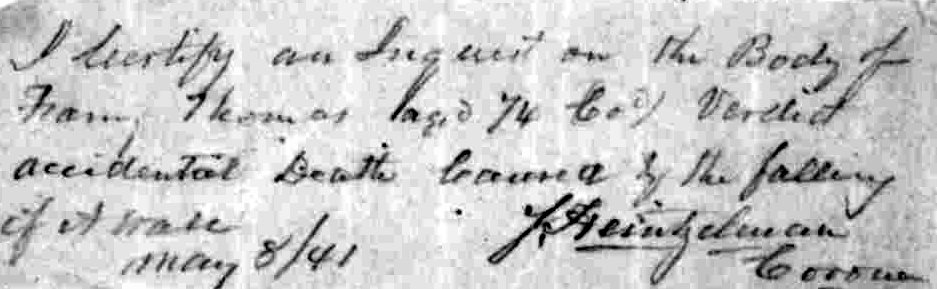 I Certify an Inquest on the Body of
Thomas (agd 74 Cod) Verdict
accidental Death Caused by the falling
of A wall
May 8/41 J. Heintzelman
Coroner